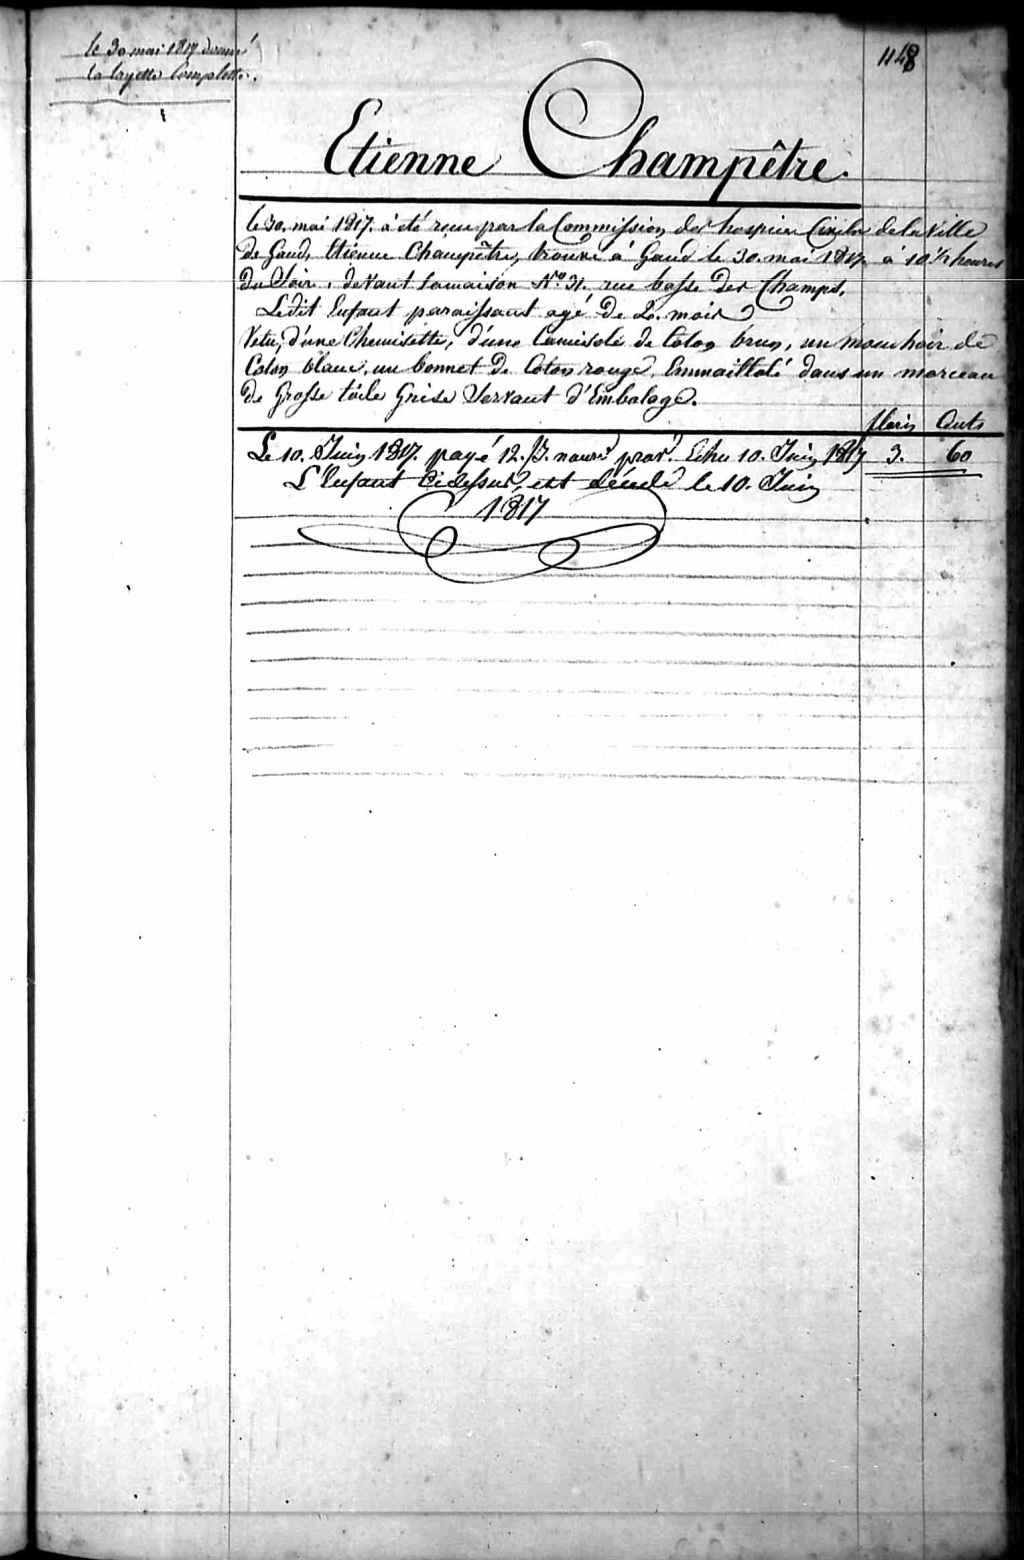 le 30 mai 1817 donné
la layette complette.
1148
Etienne Champêtre.
le 30. mai 1817. à été reçu par la Commission des hospices Civils de la Ville
de Gand, Etienne Champêtre, trouvé à Gand le 30. mai 1817. à 10 ½ heures
du Soir, devant la maison N.º 31. rue basse des Champs.
Ledit Enfant paraissant agé de 2. mois
Vetu, d'une Chemisette, d'une Camisole de Coton brun, un mouchoir de
Coton blanc, un bonnet de Coton rouge, Emmaillolé dans un morceau
de Grosse toile Grise Servant d'Embalage.
florin Cents
Le 10. Juin 1817. payé 12. J. nourre prov.e Echu 10. Juin 1817 3. 60
L'Enfant Cidessus, est décédé le 10. Juin
1817